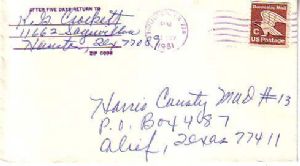 AFTER FIVE DAYS RETURN TO
11662
Houston, Tex 77089
ZIP CODE
PM
1981
Domestic Mail
C
US Postage
Harris County Mud #13
P.O. Box 4087
Alief, Texas 77411